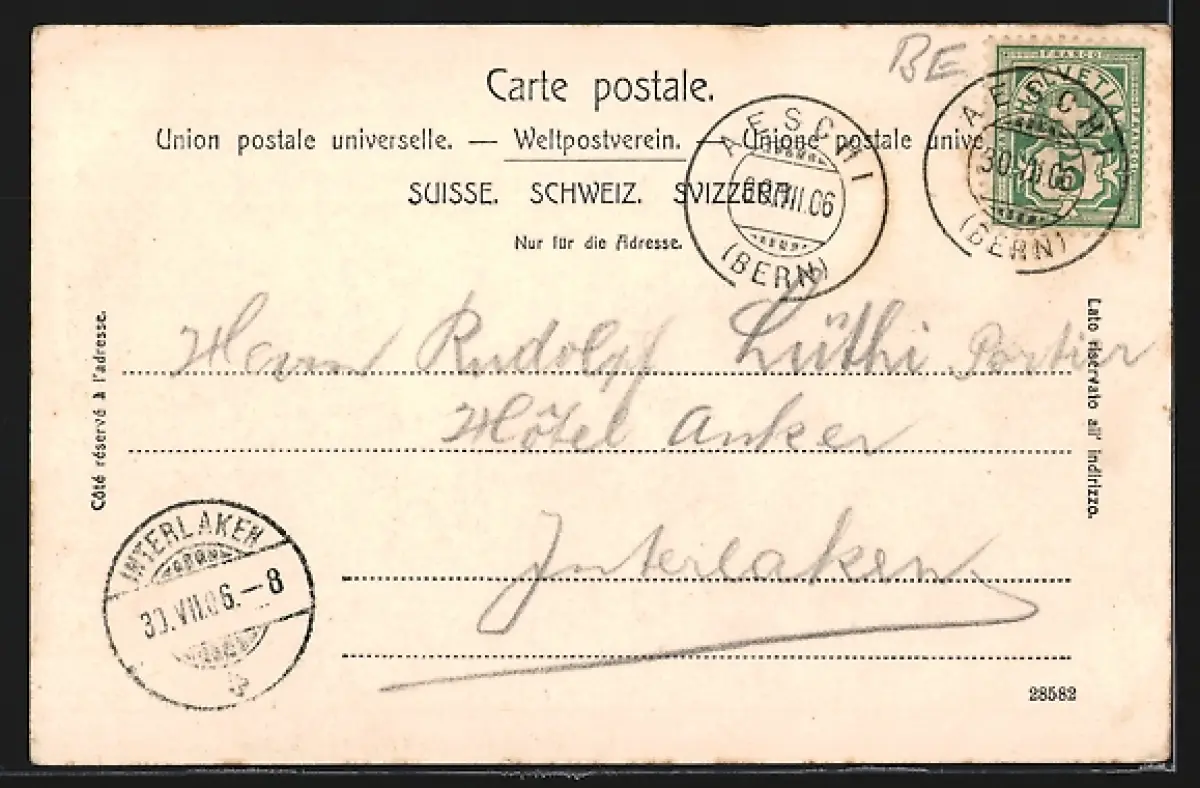 BE
Carte postale.
Union postale universelle. — Weltpostverein. — Unione postale unive
SUISSE. SCHWEIZ. SVIZZERA.
Nur für die Adresse.
FRANCO
HELVETIA
FRANCO
5
AESCHI
VII.06
(BERN)
AESCHI
30.VII.06
(BERN)
Côté réservé à l'adresse.
Lato riservato all' indirizzo.
Herrn Rudolf Lüthi Portier
Hôtel Anker
Interlaken
INTERLAKEN
30.VII.06.—8
28582